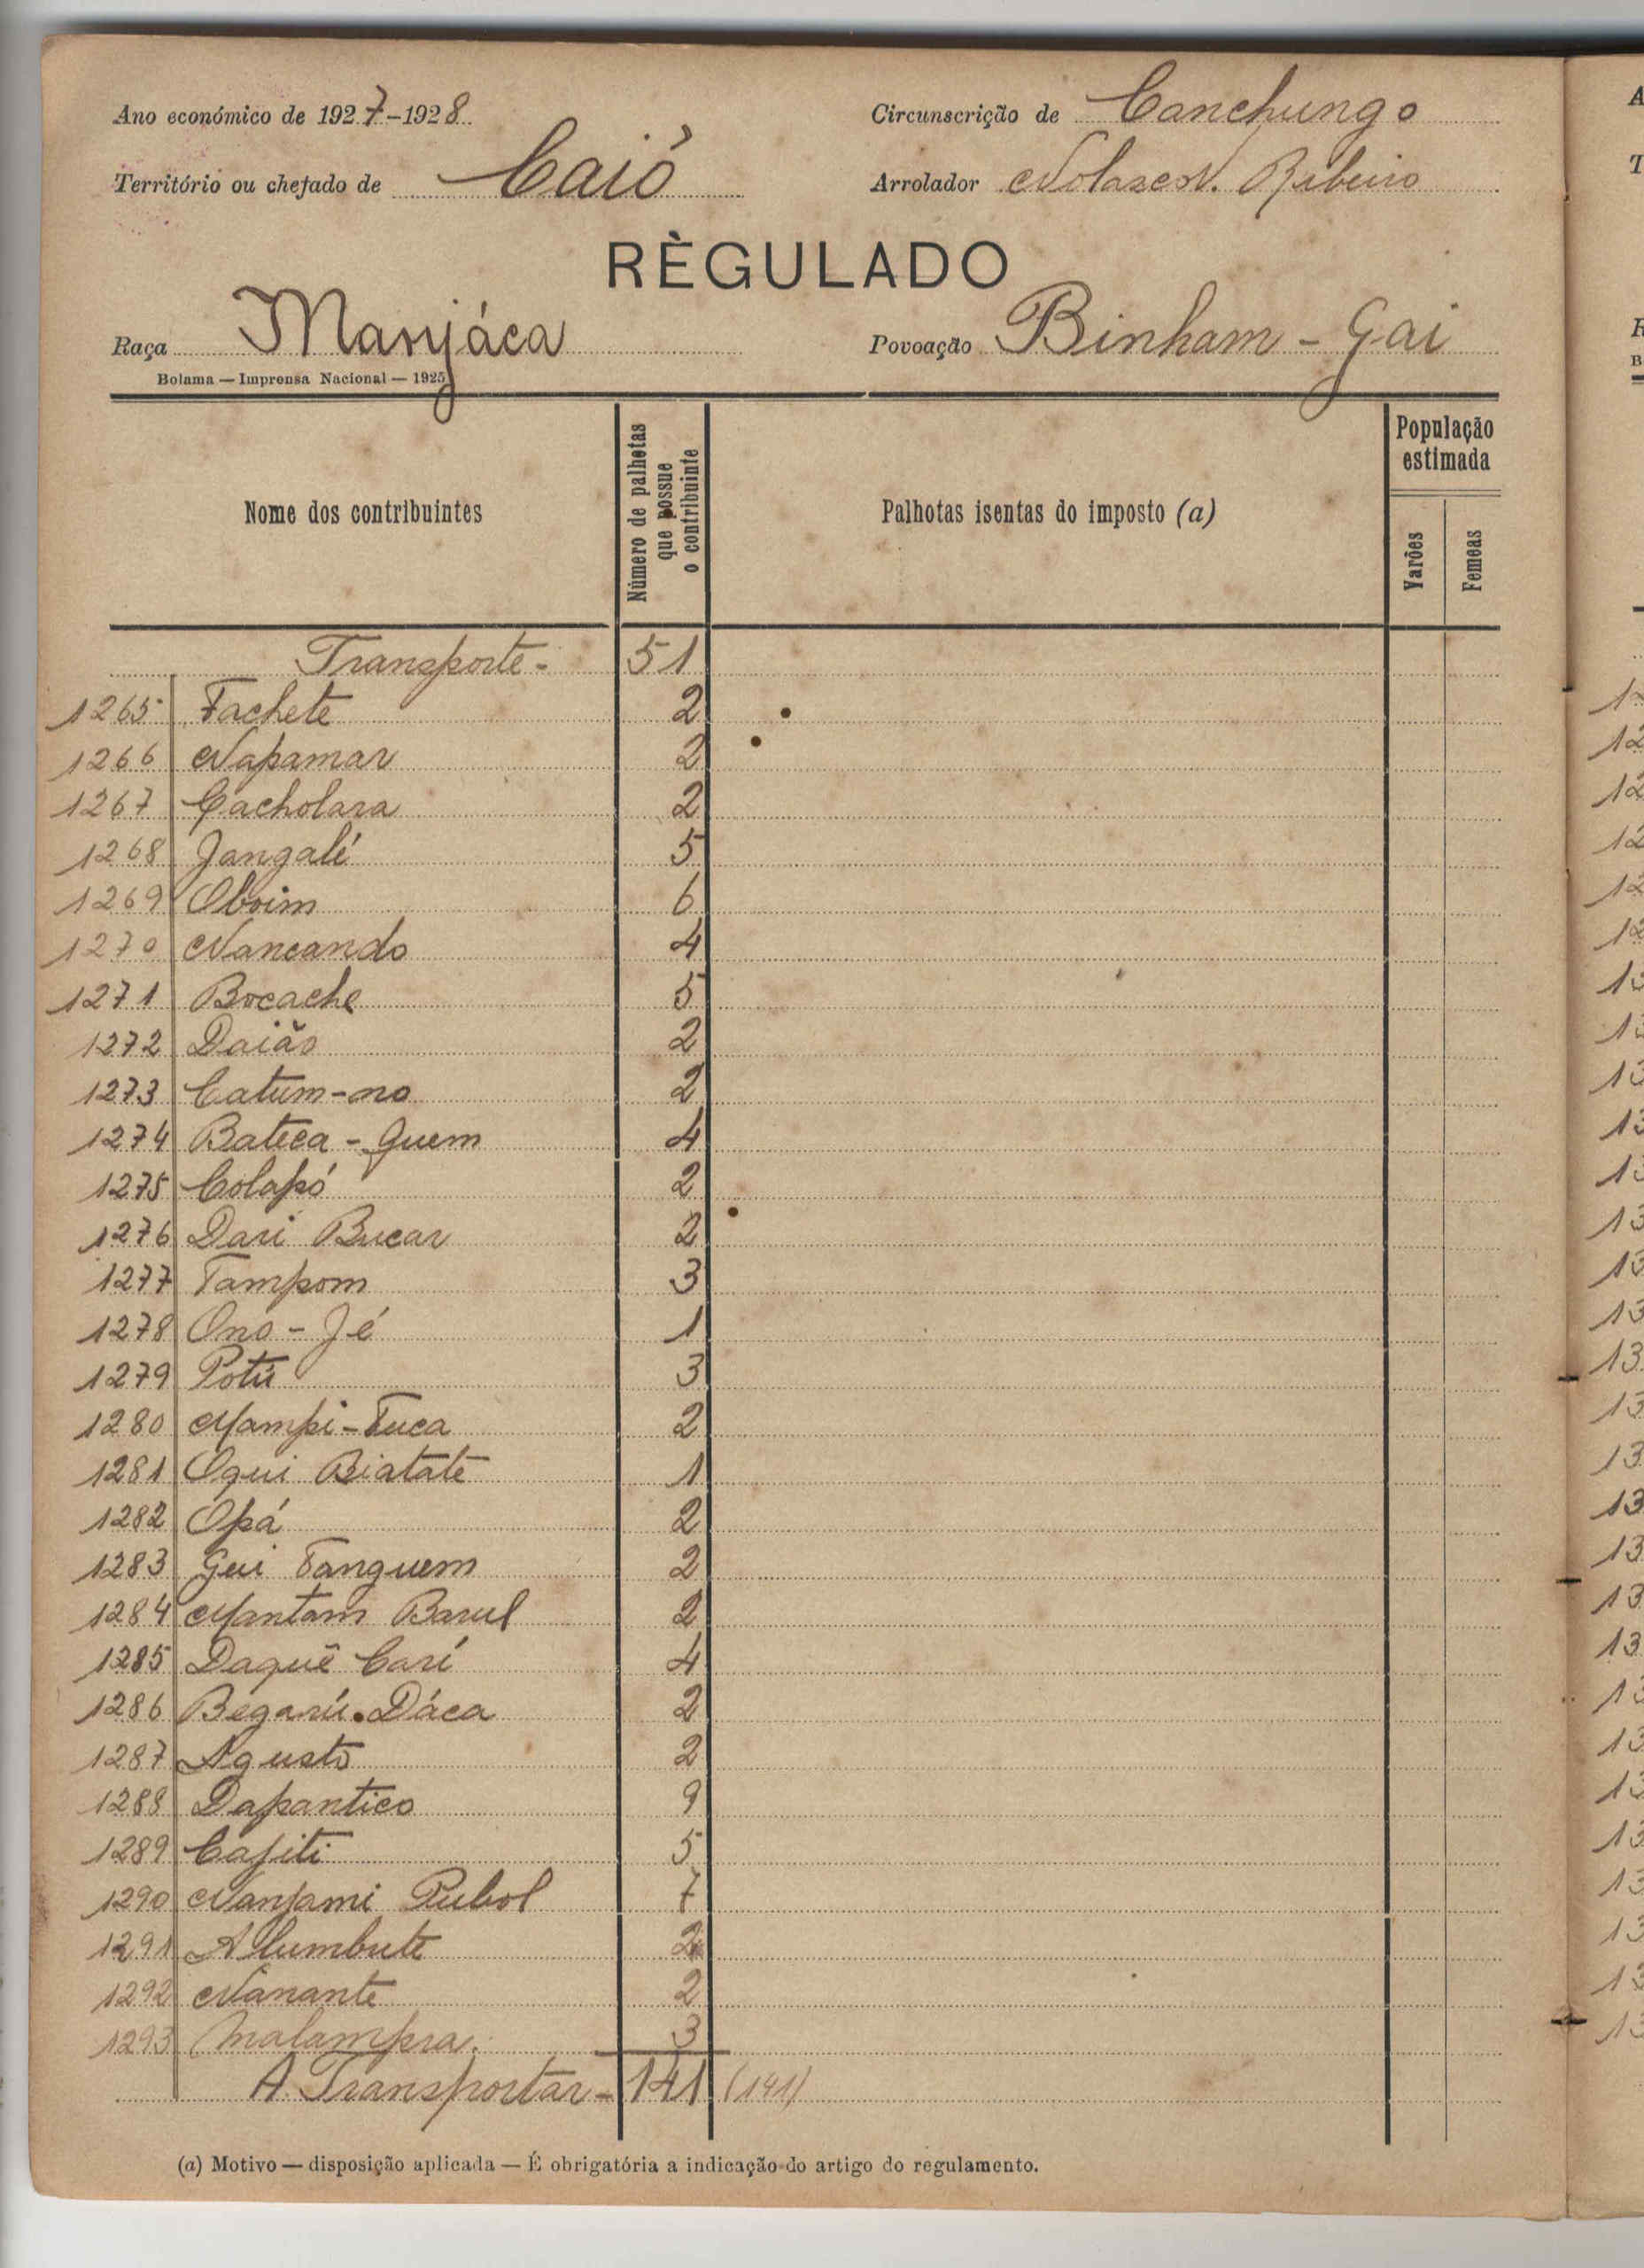 Ano económico de 1927-1928
Circunscrição de Canchungo
Território ou chefado de Caió
Arrolador Nolasco N. Ribeiro
RÈGULADO
Raça Manjáca
Povoação Binham - Gai
Bolama — Imprensa Nacional — 1925
Nome dos contribuintes
Número de palhotas que possue o contribuinte
Palhotas isentas do imposto (a)
População estimada
Varões
Femeas
Transporte - 51
1265 Fachete 2
1266 Napamar 2
1267 Cacholara 2
1268 Jangalé 5
1269 Oboim 6
1270 Nancando 4
1271 Bocache 5
1272 Daião 2
1273 Catum-no 2
1274 Bateca - Quem 4
1275 Colapó 2
1276 Dari Bucar 2
1277 Tampom 3
1278 Ono - Jé 1
1279 Potú 3
1280 Mampi-Tuca 2
1281 Oqui Biatate 1
1282 Opá 2
1283 Gui Tanguem 2
1284 Mantam Barul 2
1285 Daquê Carí 4
1286 Begarú Dáca 2
1287 Agusto 2
1288 Dapantico 9
1289 Cafiti 5
1290 Nanjami Pubol 7
1291 Alumbute 2
1292 Nanante 2
1293 Malampra 3
A Transportar - 141 (141)
(a) Motivo — disposição aplicada — É obrigatória a indicação do artigo do regulamento.